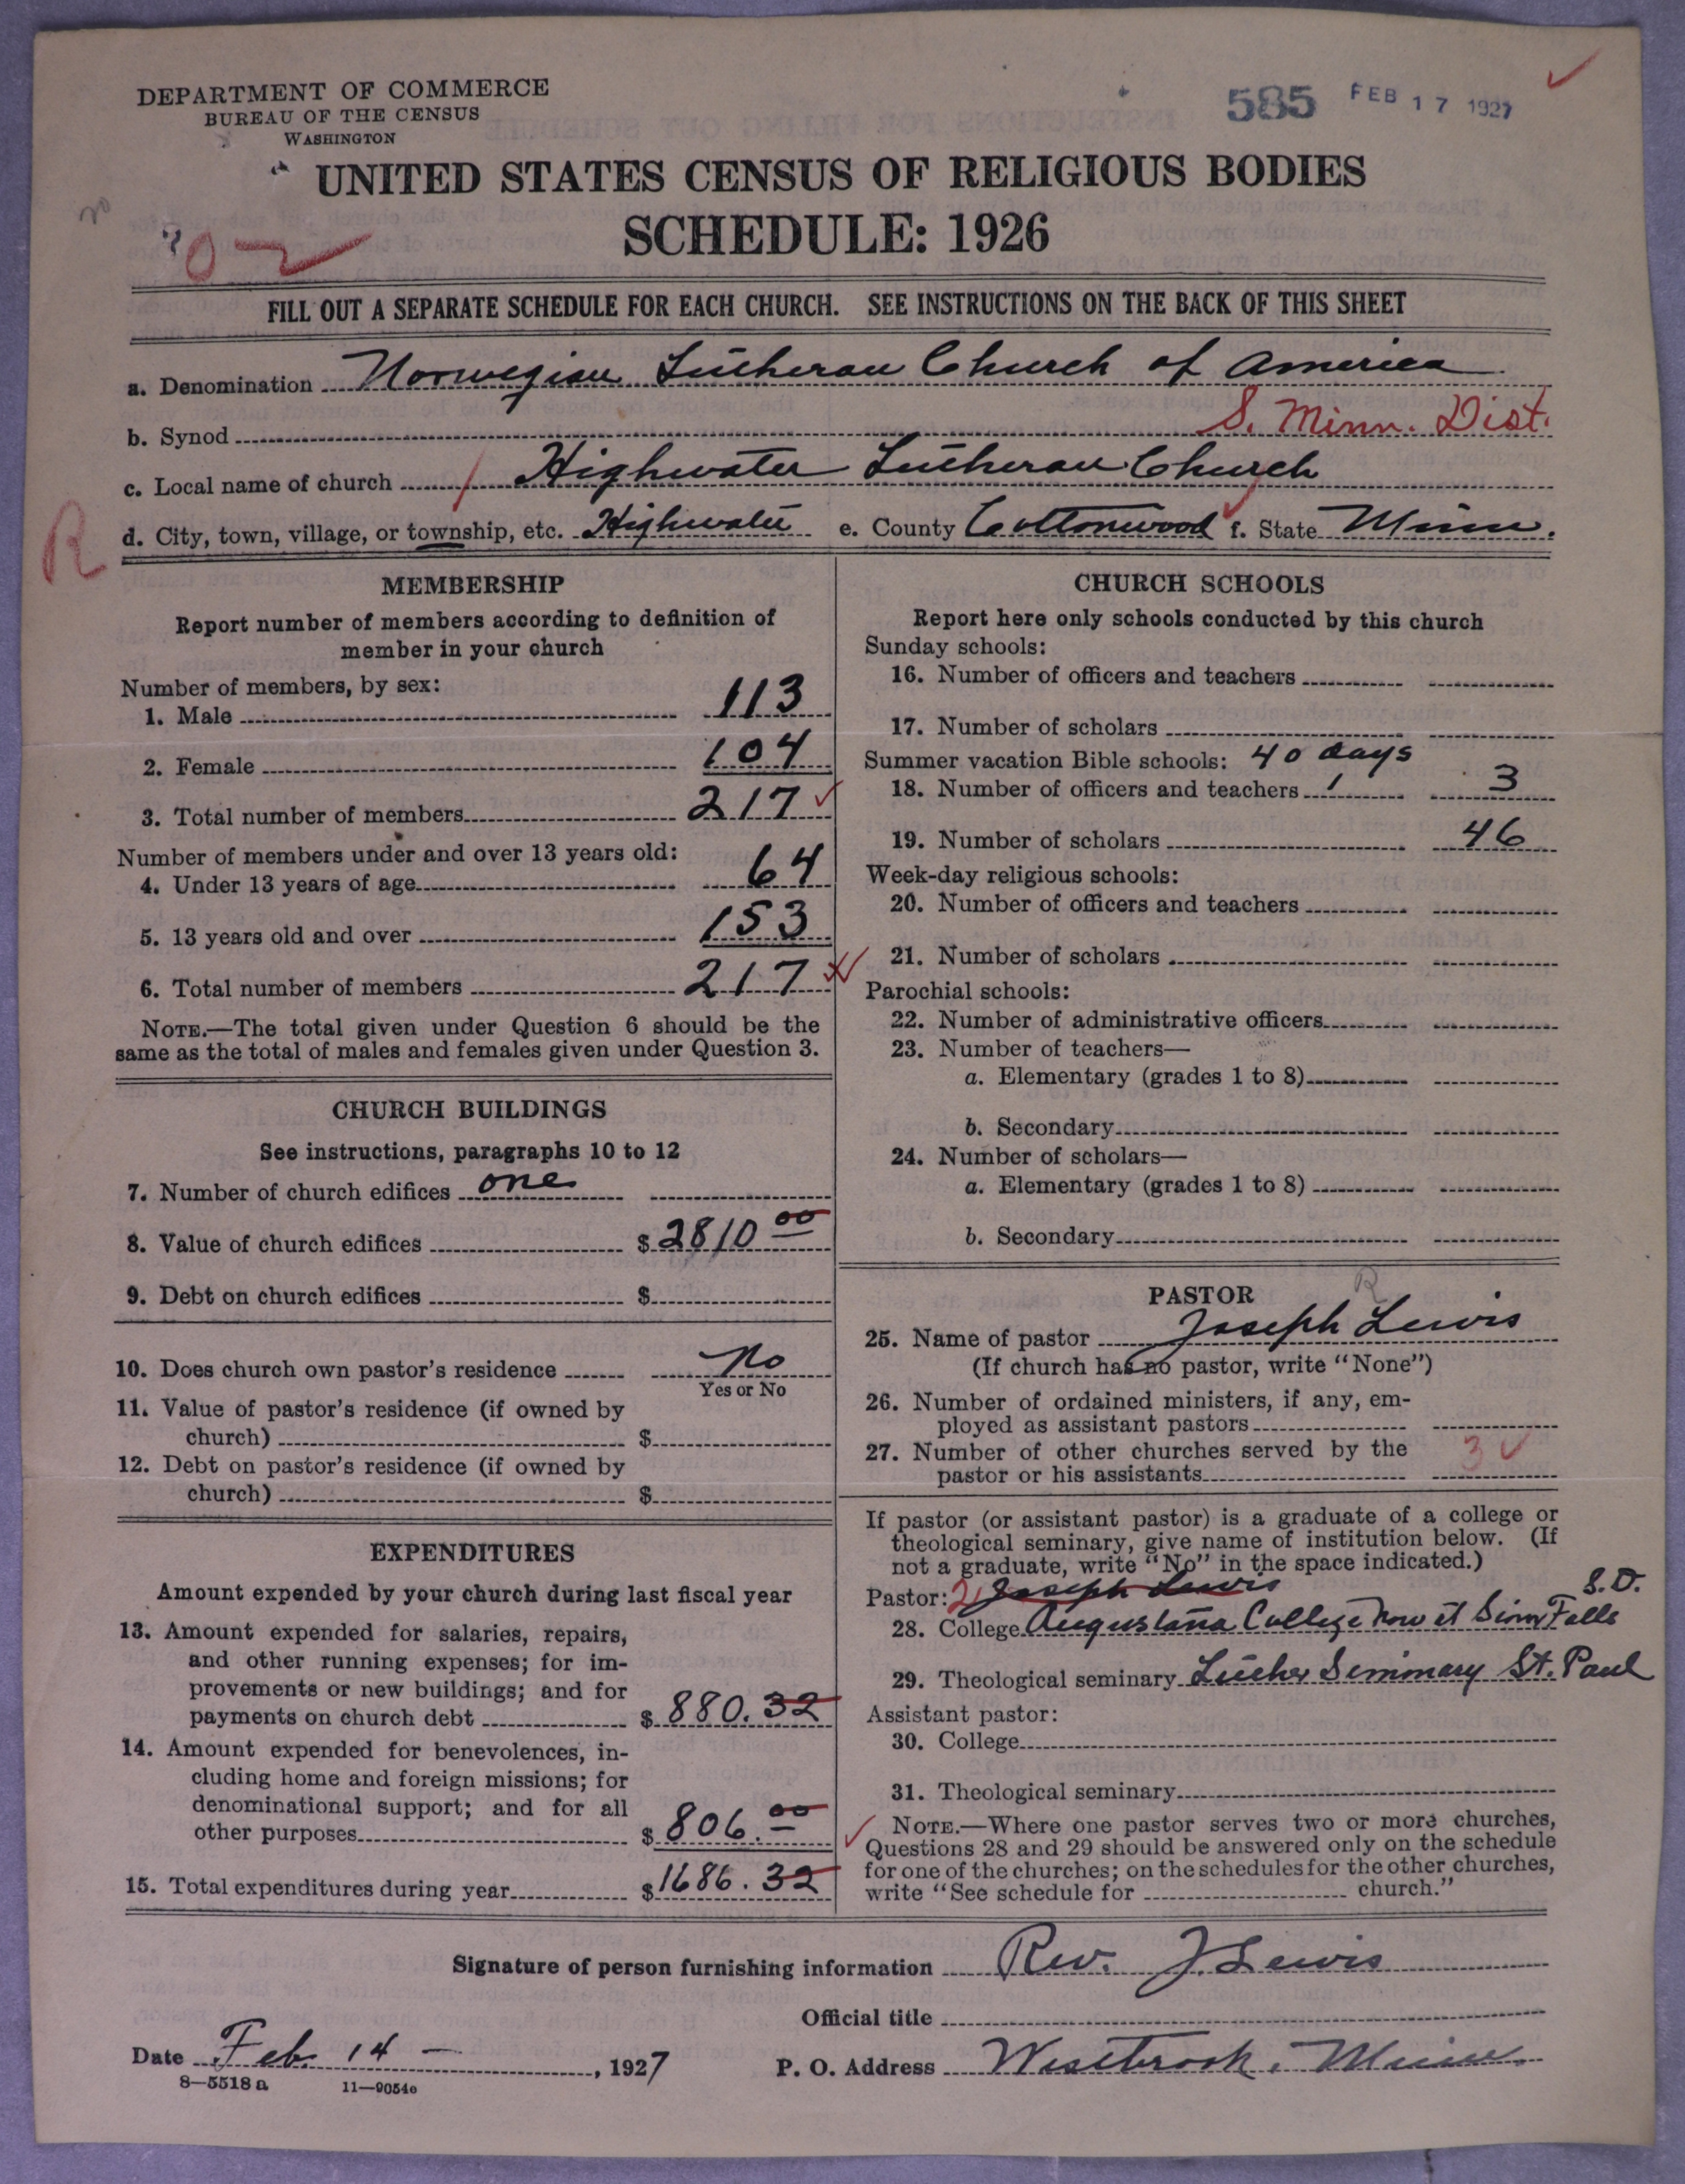 DEPARTMENT OF COMMERCE
BUREAU OF THE CENSUS
WASHINGTON
585 FEB 17 1927
UNITED STATES CENSUS OF RELIGIOUS BODIES
SCHEDULE: 1926
FILL OUT A SEPARATE SCHEDULE FOR EACH CHURCH. SEE INSTRUCTIONS ON THE BACK OF THIS SHEET
a. Denomination Norwegian Lutheran Church of America
b. Synod S. Minn. Dist.
c. Local name of church Highwater Lutheran Church
R
d. City, town, village, or township, etc. Highwater e. County Cottonwood f. State Minn.
MEMBERSHIP
Report number of members according to definition of
member in your church
Number of members, by sex:
1. Male 113
2. Female 104
3. Total number of members 217
Number of members under and over 13 years old:
4. Under 13 years of age 64
5. 13 years old and over 153
6. Total number of members 217
NOTE.—The total given under Question 6 should be the
same as the total of males and females given under Question 3.
CHURCH BUILDINGS
See instructions, paragraphs 10 to 12
7. Number of church edifices one
8. Value of church edifices $2810 00
9. Debt on church edifices $
10. Does church own pastor's residence No
Yes or No
11. Value of pastor's residence (if owned by
church) $
12. Debt on pastor's residence (if owned by
church) $
EXPENDITURES
Amount expended by your church during last fiscal year
13. Amount expended for salaries, repairs,
and other running expenses; for im-
provements or new buildings; and for
payments on church debt $880.32
14. Amount expended for benevolences, in-
cluding home and foreign missions; for
denominational support; and for all
other purposes $806.00
15. Total expenditures during year $1686.32
CHURCH SCHOOLS
Report here only schools conducted by this church
Sunday schools:
16. Number of officers and teachers
17. Number of scholars
Summer vacation Bible schools: 40 days
18. Number of officers and teachers 1 3
19. Number of scholars 46
Week-day religious schools:
20. Number of officers and teachers
21. Number of scholars
Parochial schools:
22. Number of administrative officers
23. Number of teachers—
a. Elementary (grades 1 to 8)
b. Secondary
24. Number of scholars—
a. Elementary (grades 1 to 8)
b. Secondary
PASTOR
R
25. Name of pastor Joseph Lewis
(If church has no pastor, write "None")
26. Number of ordained ministers, if any, em-
ployed as assistant pastors
27. Number of other churches served by the
pastor or his assistants 3
If pastor (or assistant pastor) is a graduate of a college or
theological seminary, give name of institution below. (If
not a graduate, write "No" in the space indicated.)
Pastor: 2 Joseph Lewis S.D.
28. College Augustana College now at Sioux Falls
29. Theological seminary Luther Seminary St. Paul
Assistant pastor:
30. College
31. Theological seminary
NOTE.—Where one pastor serves two or more churches,
Questions 28 and 29 should be answered only on the schedule
for one of the churches; on the schedules for the other churches,
write "See schedule for church."
Signature of person furnishing information Rev. J. Lewis
Official title
Date Feb. 14 — , 1927
P. O. Address Westbrook, Minn.
8—5518 a 11—9054c